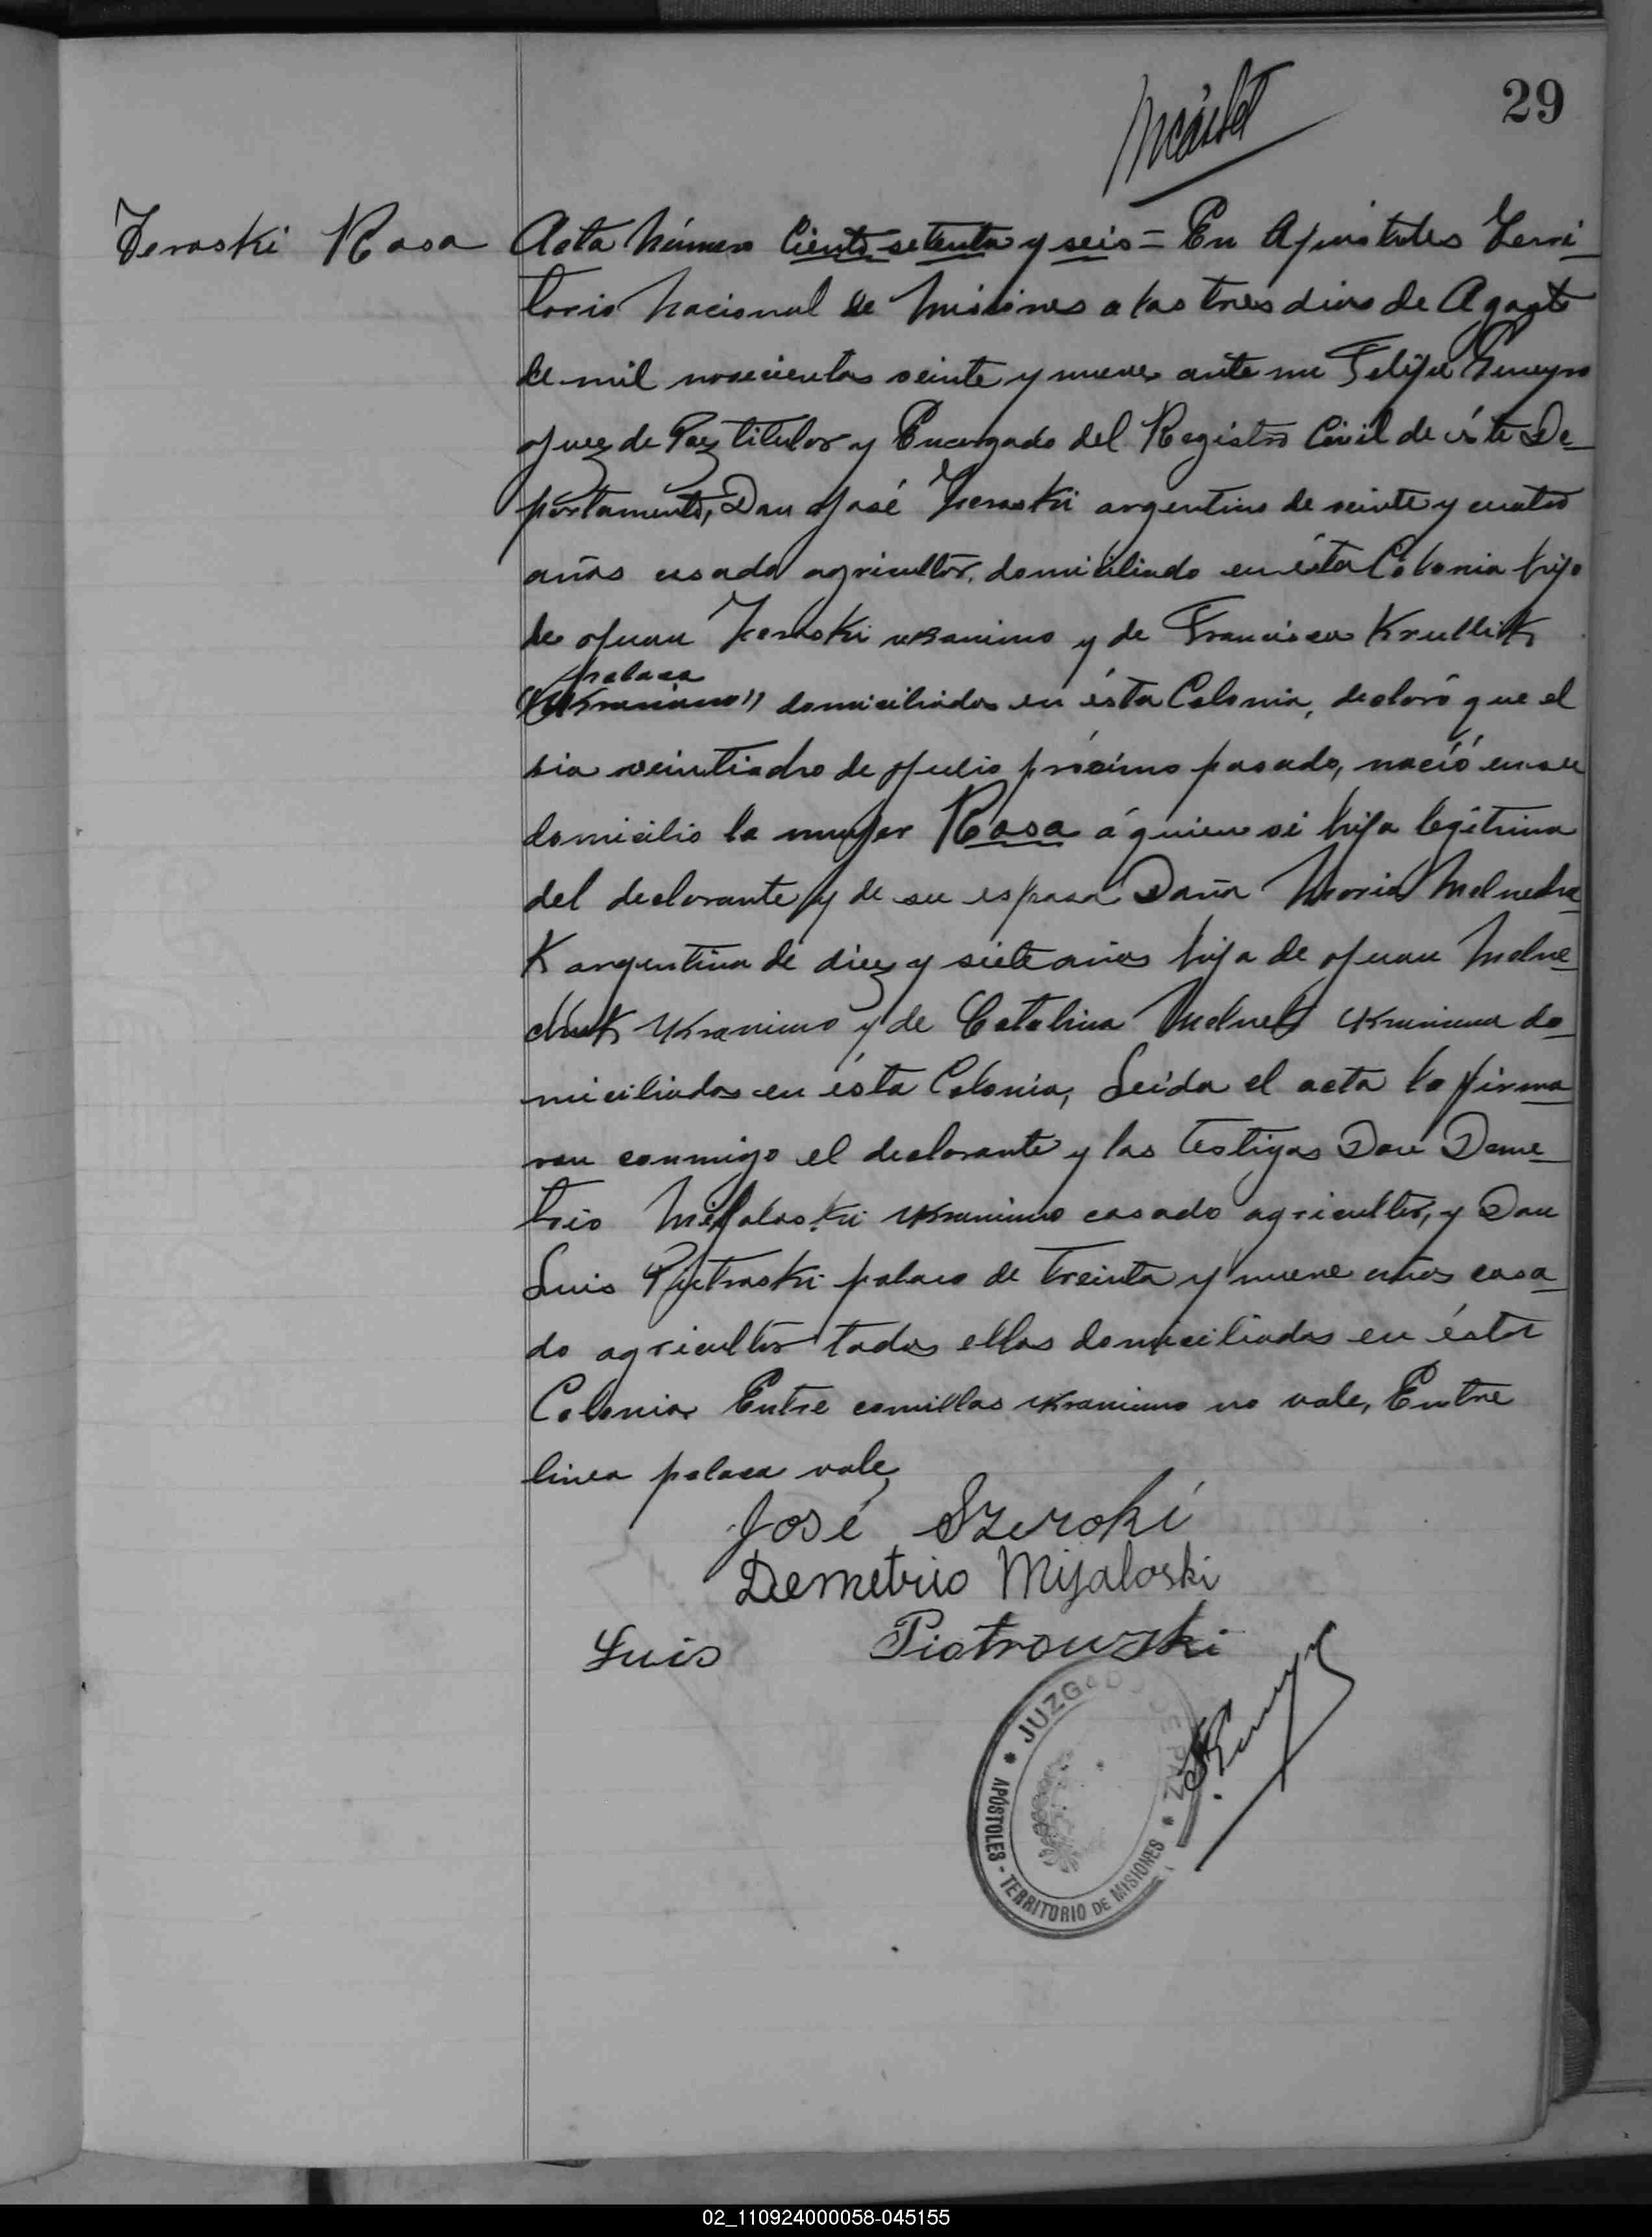 29
Zeroski Rosa
Acta Número Ciento setenta y seis = En Apóstoles Terri-
torio Nacional de Misiones a los tres dias de Agosto
de mil novecientos veinte y nueve ante mi Felipe
Juez de Paz titular y Encargado del Registro Civil de éste De-
partamento, Don José Zeroski argentino de veinte y cuatro
años casado agricultor, domiciliado en ésta Colonia hijo
de Juan Zeroski ukraniano y de Francisca Krullik
polaca
"Ukraniano" domiciliados en ésta Colonia, declaró que el
dia de Julio próximo pasado, nació en su
domicilio la mujer Rosa á quien vi hija legitima
del declarante y de su esposa Doña Maria Melnechu-
K argentina de diez y siete años hija de Juan Melne-
chuk Ukraniano y de Catalina Melnek Ukraniana do-
miciliados en ésta Colonia, Leida el acta la firma-
ron conmigo el declarante y los testigos Don Deme-
trio Mijaloski ukraniano casado agricultor, y Don
Luis Pietroski polaco de treinta y nueve años casa-
do agricultor todos ellos domiciliados en ésta
Colonia Entre comillas ukraniano no vale, Entre
linea polaca vale,
José Szeroki
Demetrio Mijaloski
Luis Piotrowski
JUZGADO DE PAZ
APÓSTOLES - TERRITORIO DE MISIONES
02_110924000058-045155